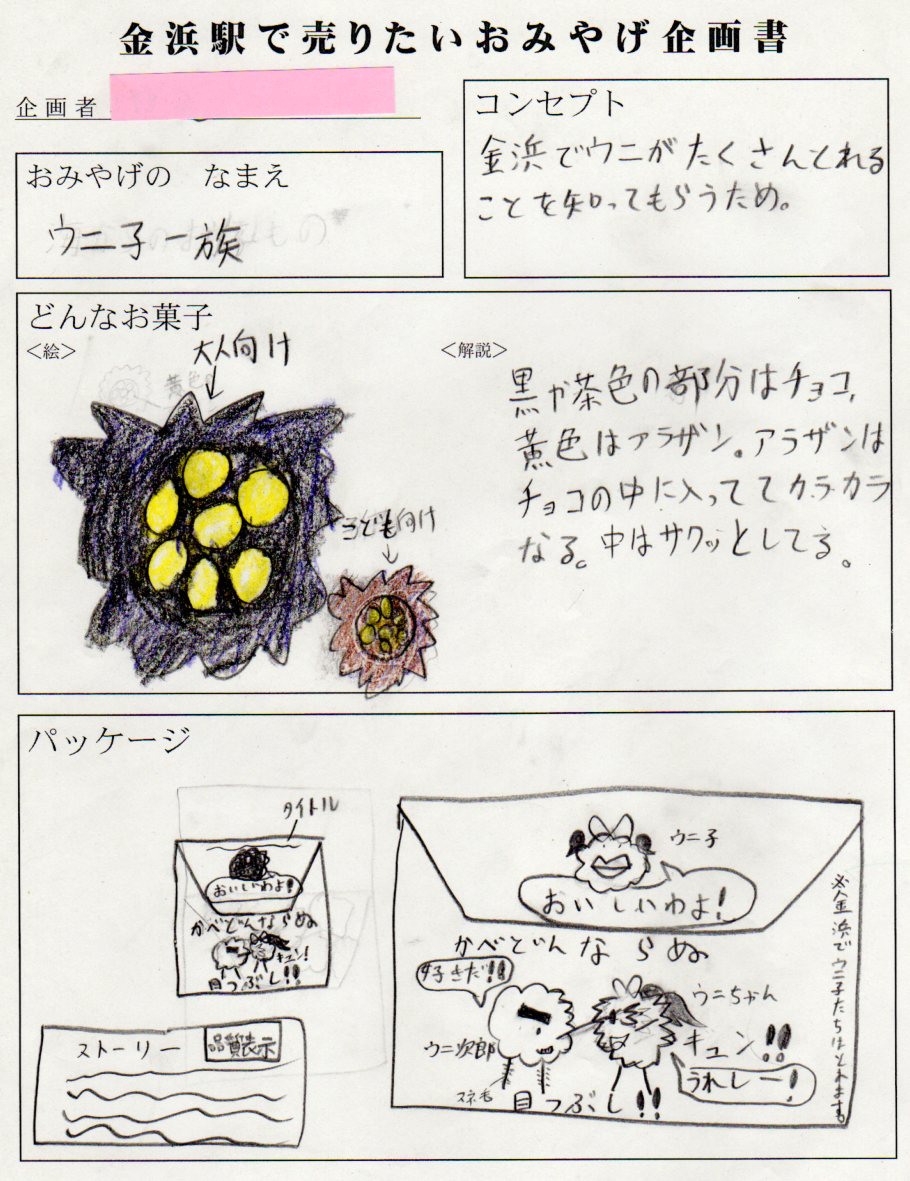 金浜駅で売りたいおみやげ企画書
企画者
コンセプト
金浜でウニがたくさんとれる
ことを知ってもらうため。
おみやげの なまえ
ウニ子一族
どんなお菓子
＜絵＞
大人向け
子ども向け
＜解説＞
黒か茶色の部分はチョコ、
黄色はアラザン。アラザンは
チョコの中に入っててカラカラ
なる。中はサクッとしてる。
パッケージ
タイトル
おいしいわよ!
かべどんならぬ
キュン!
目つぶし!!
ストーリー
品質表示
ウニ子
おいしいわよ!
かべどんならぬ
好きだ!!
ウニちゃん
ウニ次郎
キュン!!
うれしー!
スネ毛
目つぶし!!
※金浜でウニ子たちはとれます。